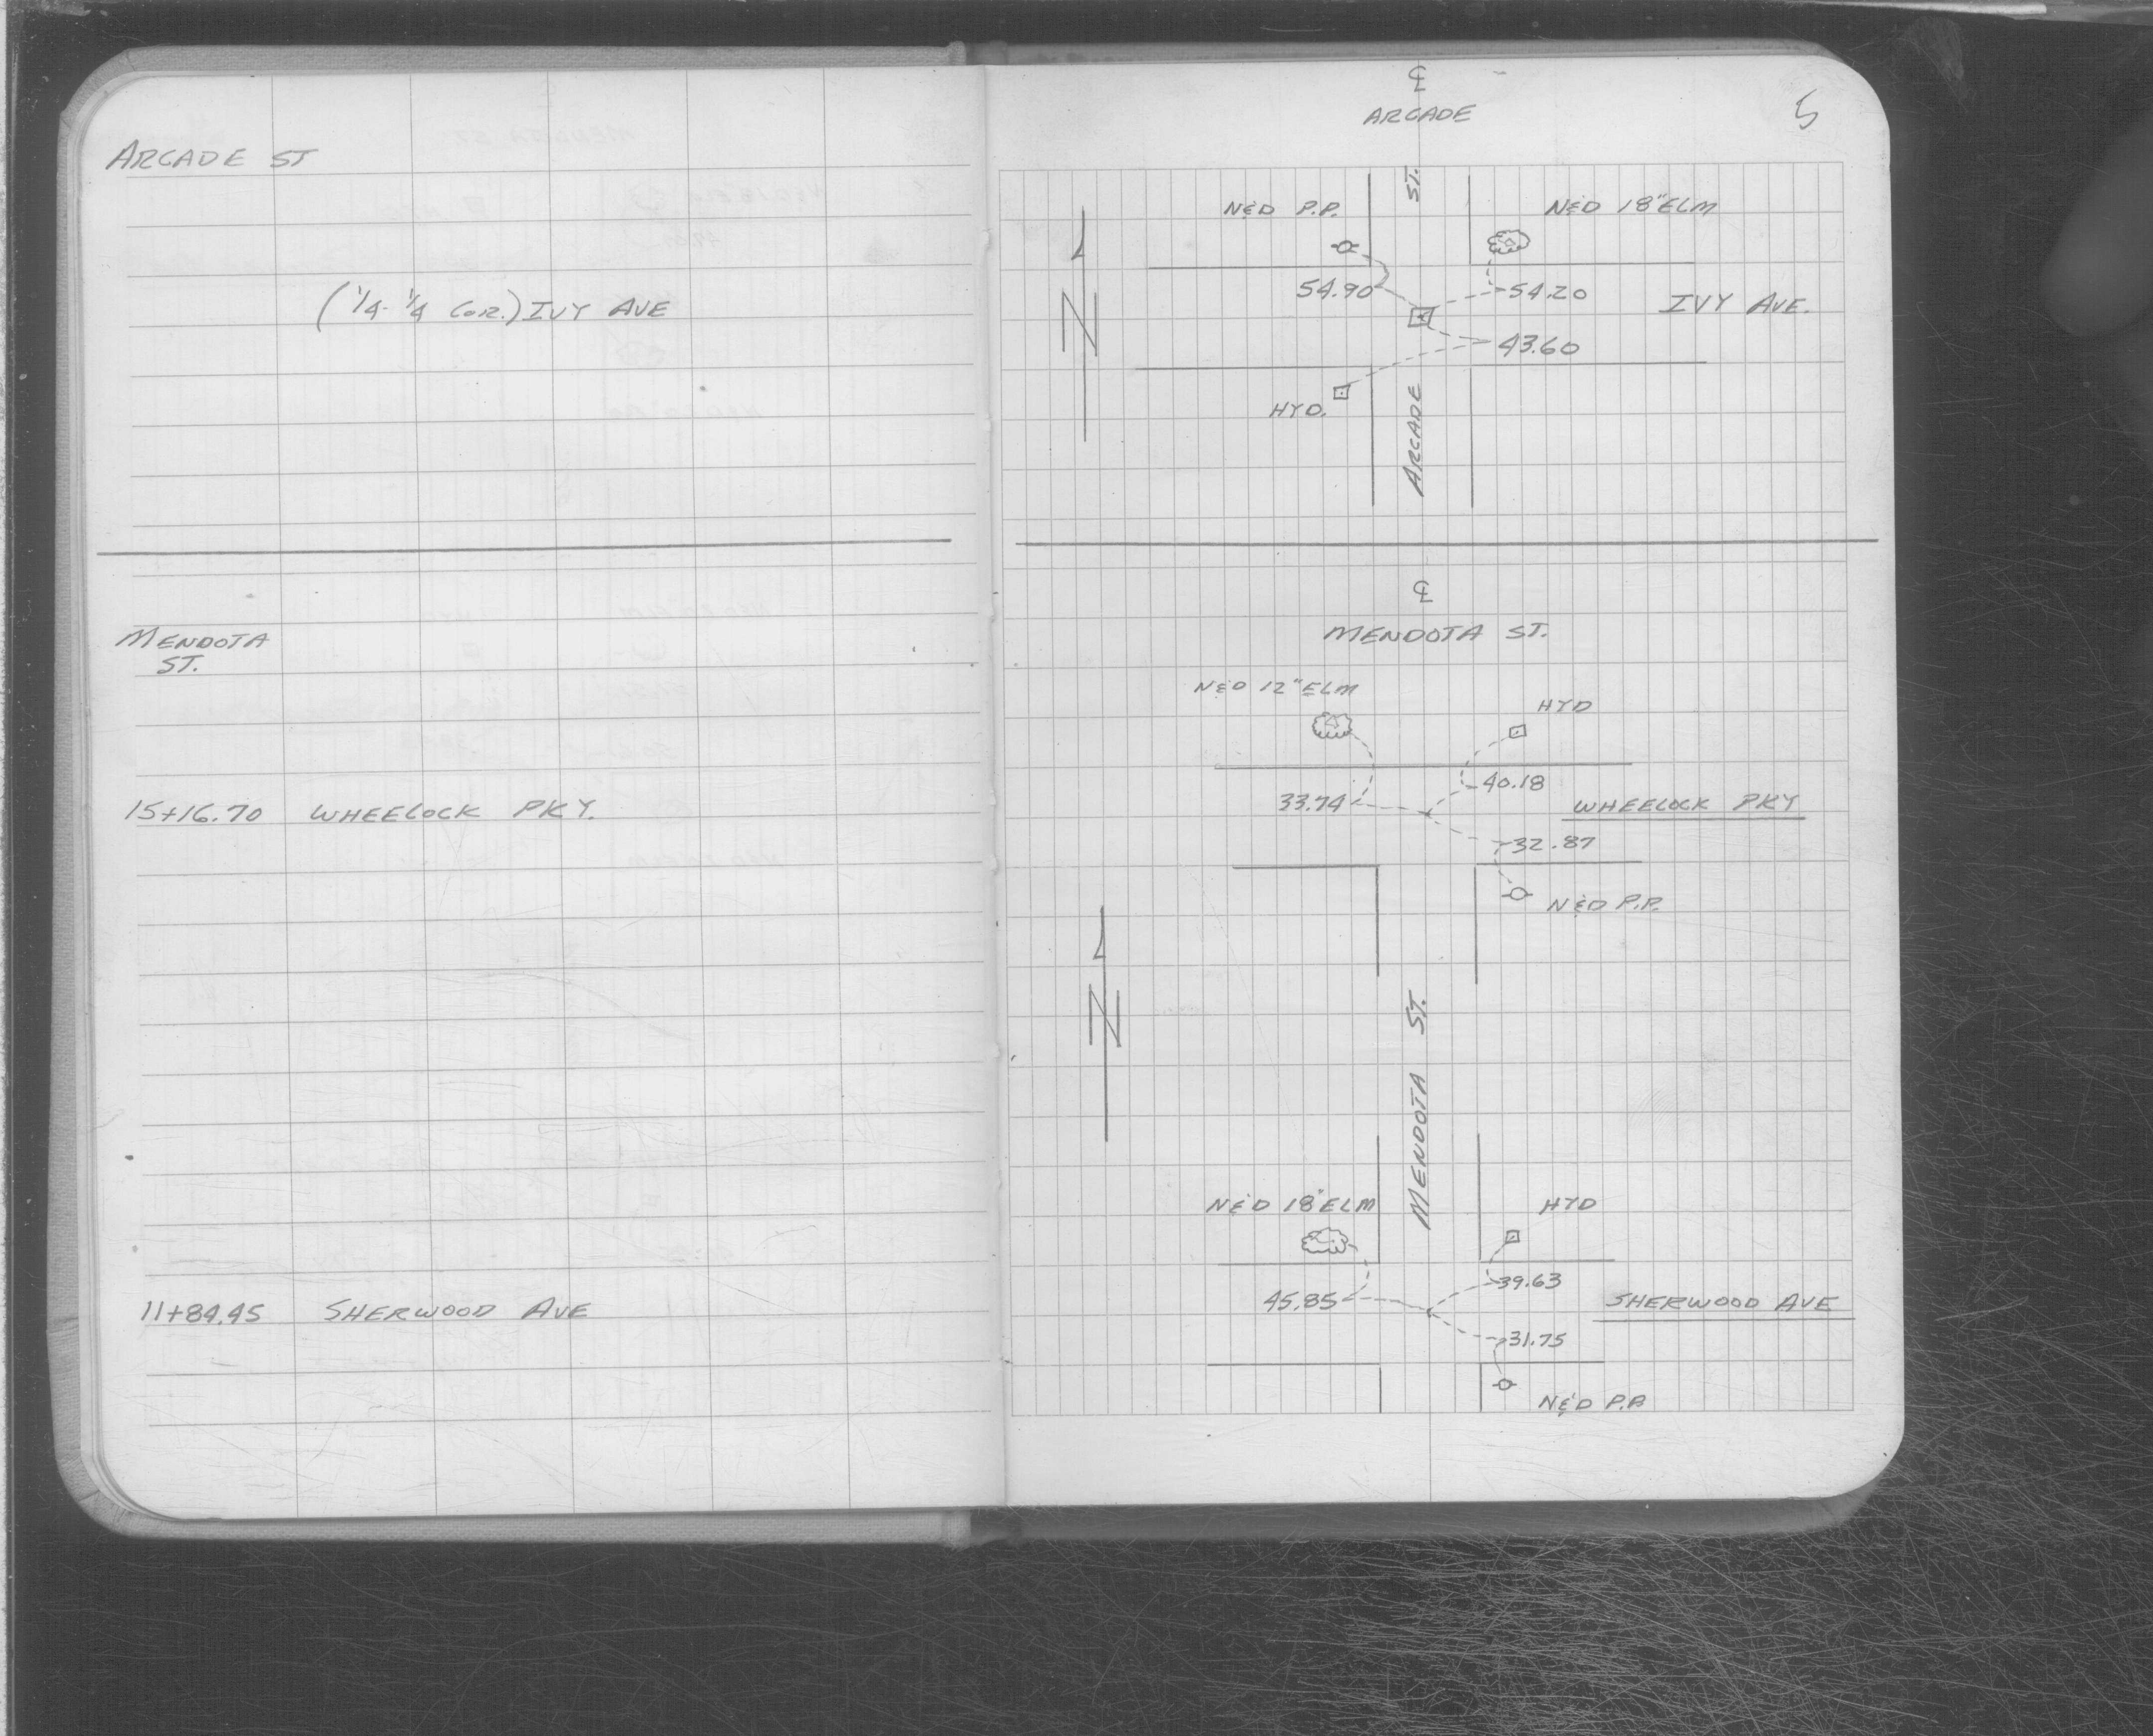 ARCADE ST
(1/4 - 1/4 COR.) IVY AVE
MENDOTA
ST.
15+16.70 WHEELOCK PKY.
11+84.45 SHERWOOD AVE
5
℄
ARCADE
ST.
N&D P.P.
N&D 18" ELM
54.90
54.20
IVY AVE.
N
43.60
HYD.
ARCADE
℄
MENDOTA ST.
N&D 12" ELM
HYD
40.18
33.74
WHEELOCK PKY
32.87
N&D P.P.
N
MENDOTA ST.
N&D 18" ELM
HYD
39.63
45.85
SHERWOOD AVE
31.75
N&D P.P.